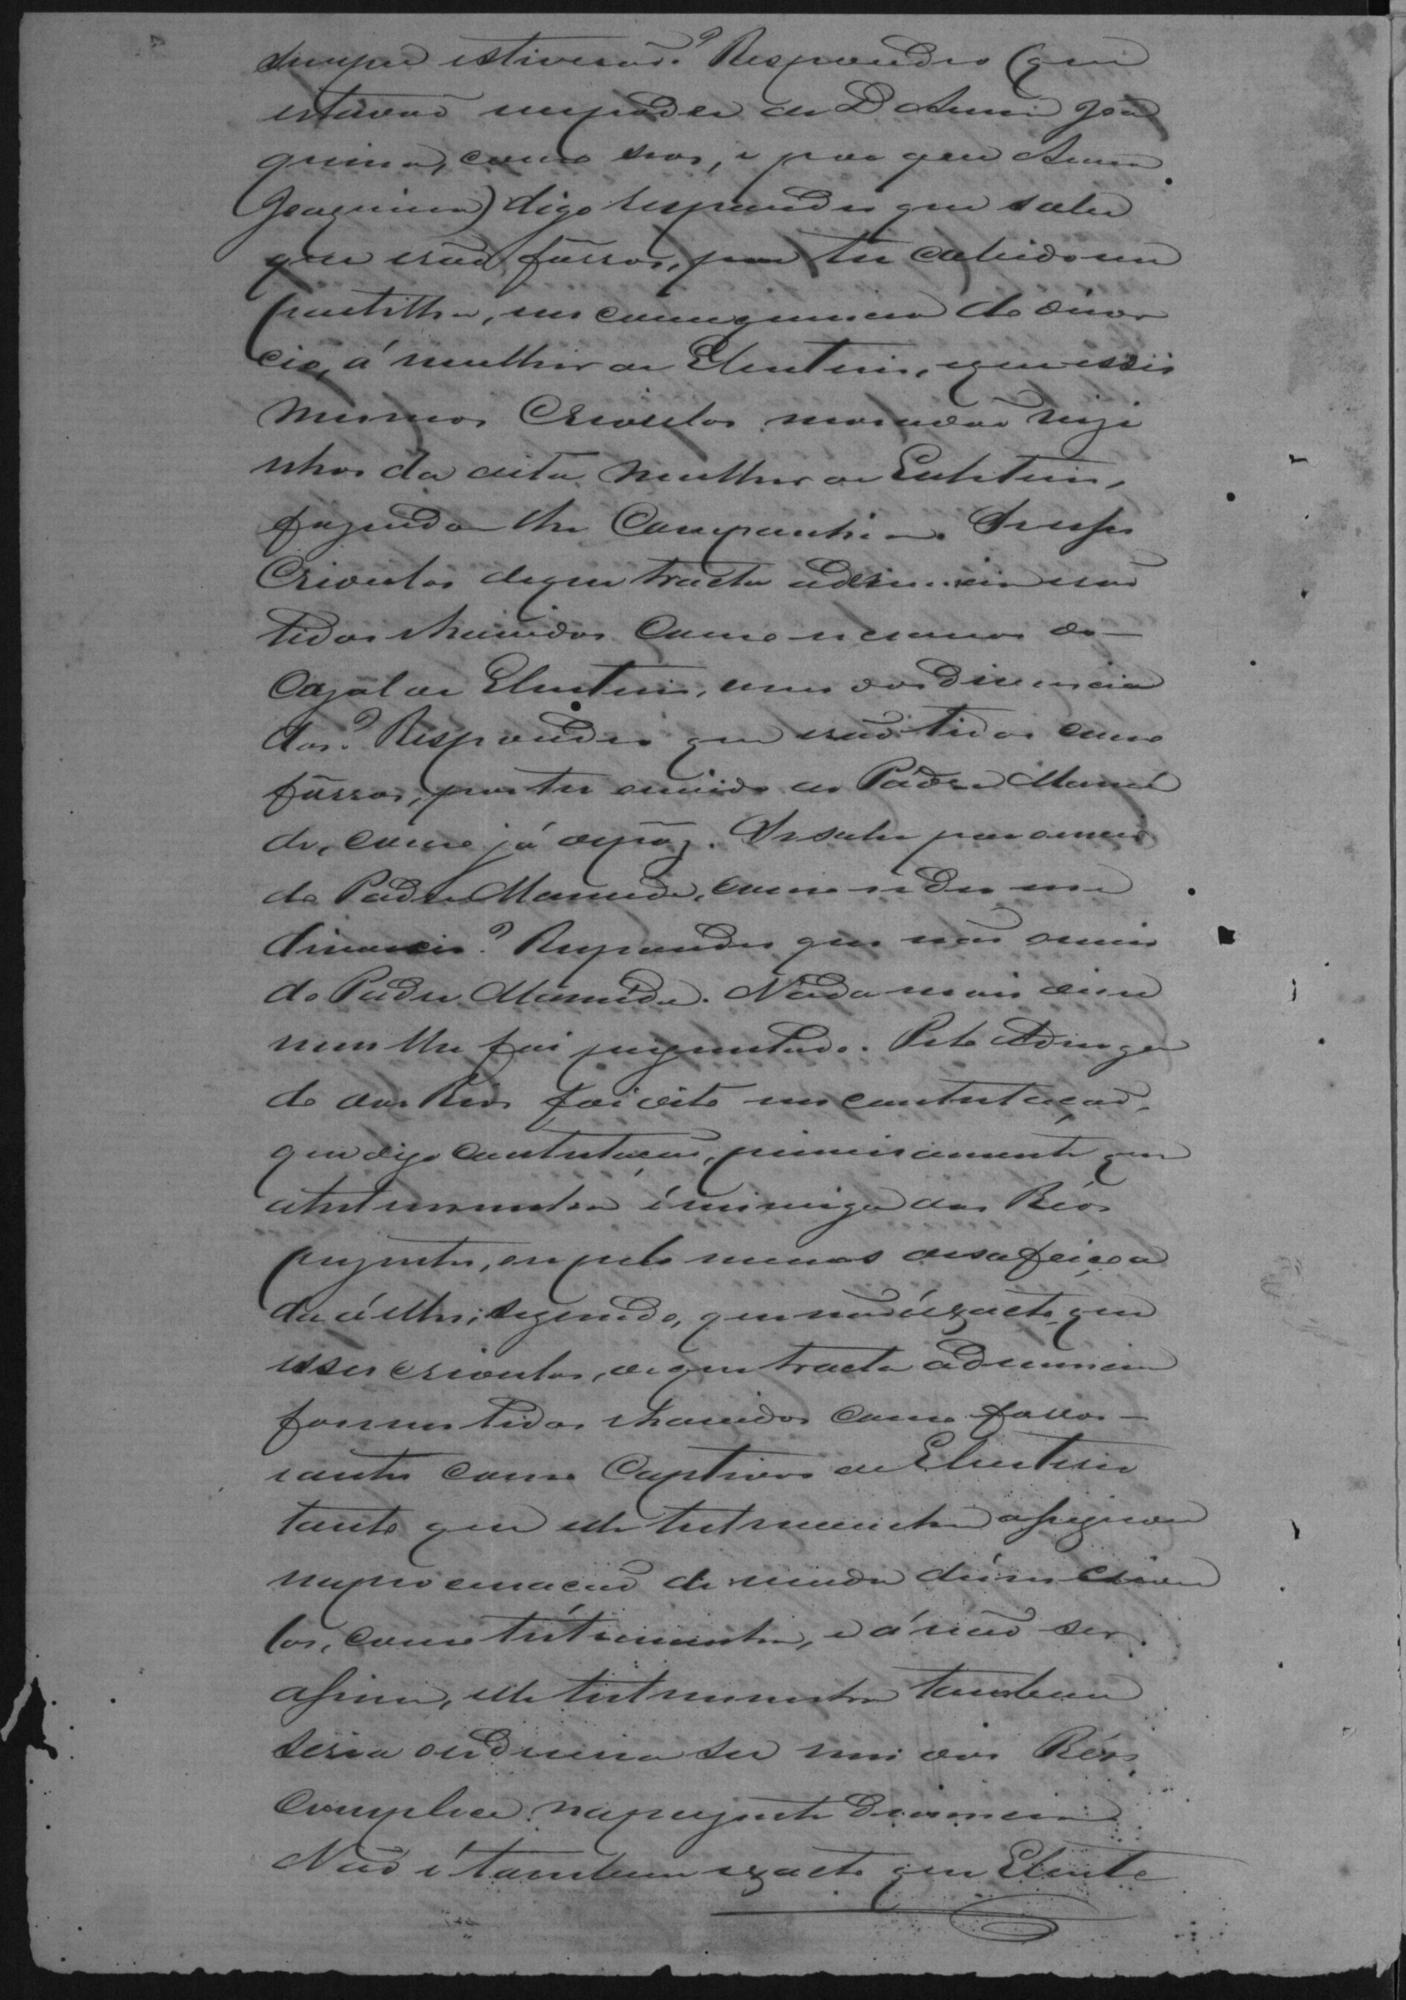 sempre estiverão? Respondeo (que
estavão em poder de D Anna Joa
quina, como seos, e por que Anna
Joaquina) digo respondeo que sabe
que erão fôrros, por ter cabido em
partilha, em consequencia do divor
cio, á mulher de Eleuterio, e que esses
mesmos Crioulos moravão vizi
nhos da dita mulher de Eleuterio,
fazendo-lhe Companhia. Se esses
Crioulos de que tracta a denuncia erão
tidos e havidos como escravos do
Cazal de Eleuterio, ou dos denuncia
dos? Respondeo que erão tidos como
fôrros, por ter ouvido do Padre Mamê
de, como já depôz. Se sabe por ouvir
do Padre Mamede, como se deo esse
divorcio? Respondeo que não ouvio
do Padre Mamêde. Nada mais disse
nem lhe foi perguntado. Pelo Advoga
do dos Réos foi dito em contestação,
que digo contestação, primeiramente que
a testemunha é inimiga dos Réos
prezentes, ou pelo menos desafeiçoa
da á elles; segundo, que não é exacto que
esses crioulos, de que tracta a denuncia
fossem tidos e havidos como forros
e antes como Captivos de Eleuterio
tanto que esta testemunha assignou
na procuração de venda desses criou
los, como testemunha, e á não ser
assim, esta testemunha tambem
seria ou deveria ser um dos Réos
complice na prezente denuncia.
Não é tambem exacto que Eleute